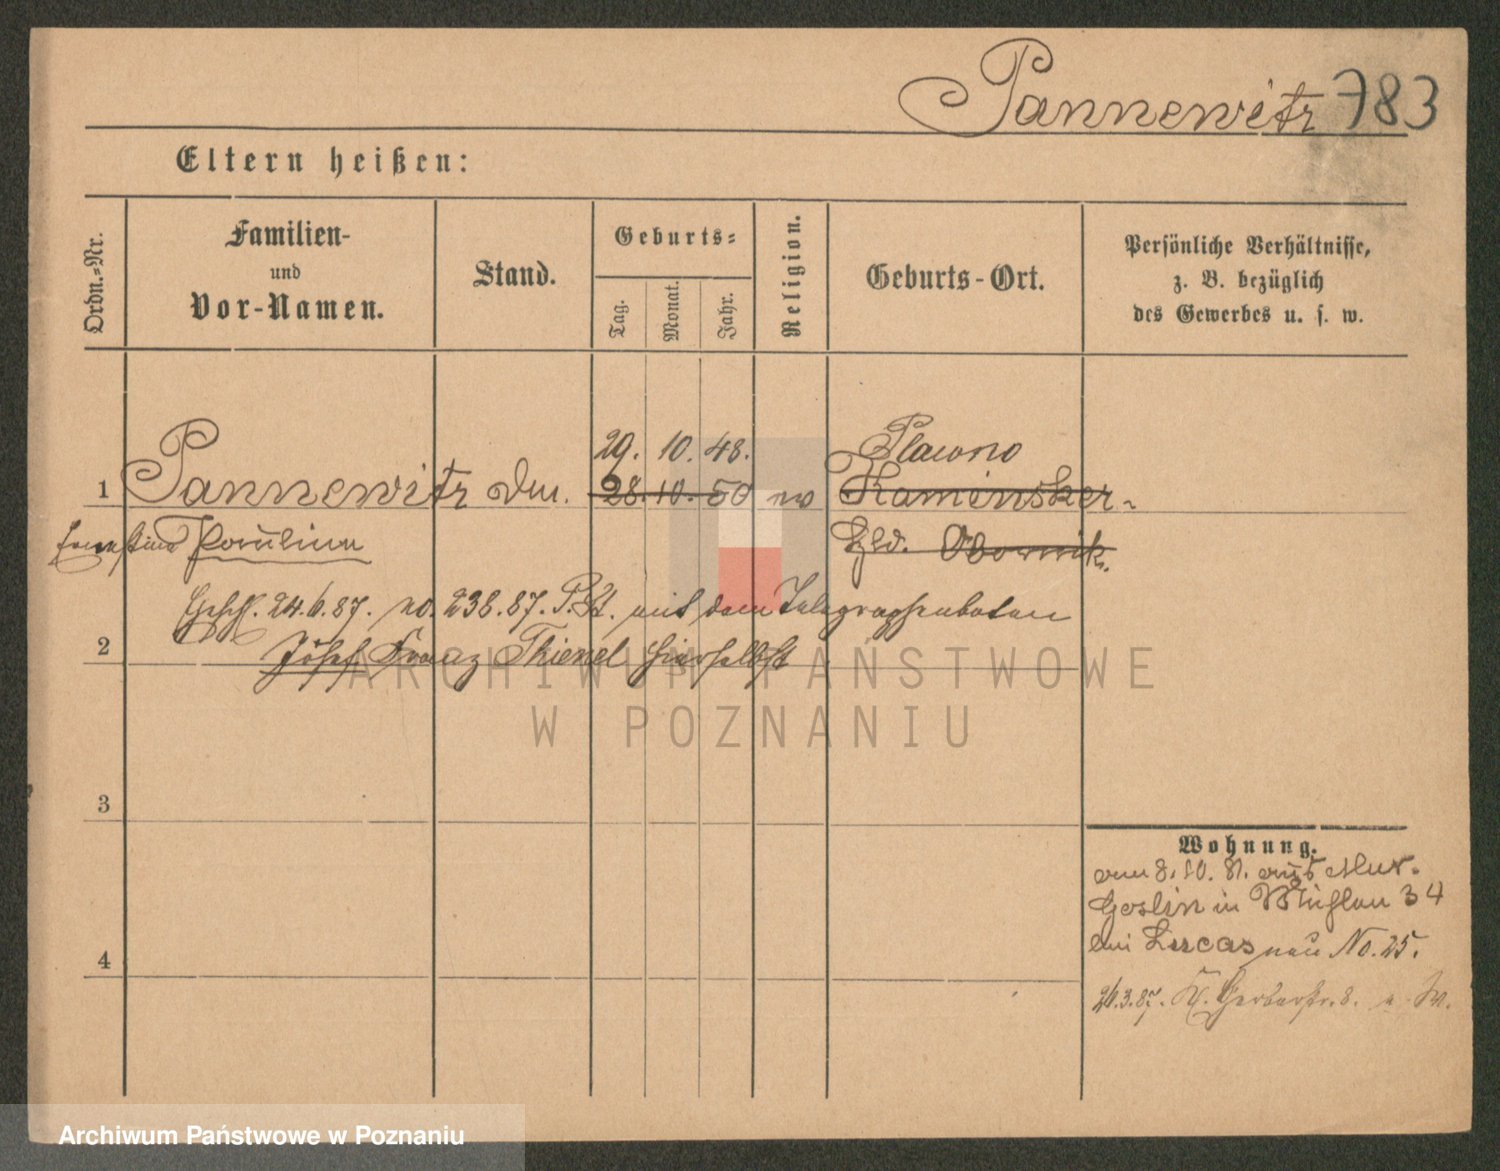 Pannewitz 783
Eltern heißen:
Ordn.-Nr.
Familien-
und
Vor-Namen.
Stand.
Geburts-
Tag.
Monat.
Jahr.
Religion.
Geburts-Ort.
Persönliche Verhältnisse,
z. B. bezüglich
des Gewerbes u. s. w.
29. 10. 48. Plawno
1 Pannewitz 28. 10. 50 ev Kaminsker-
Ernestine Pauline Hld. Obornik.
Gesch. 24.6.87. no. 238.87. P.St. mit dem Telegraphenboten
2 Josef Franz Thienel hierselbst
3
4
Wohnung.
am 8. 10. 81. aus Mur.
Goslin in Mühlen 34
bei Lucas neu No. 25.
26.3.87. K. Gerberstr. 8. W.
ARCHIWUM PAŃSTWOWE
W POZNANIU
Archiwum Państwowe w Poznaniu